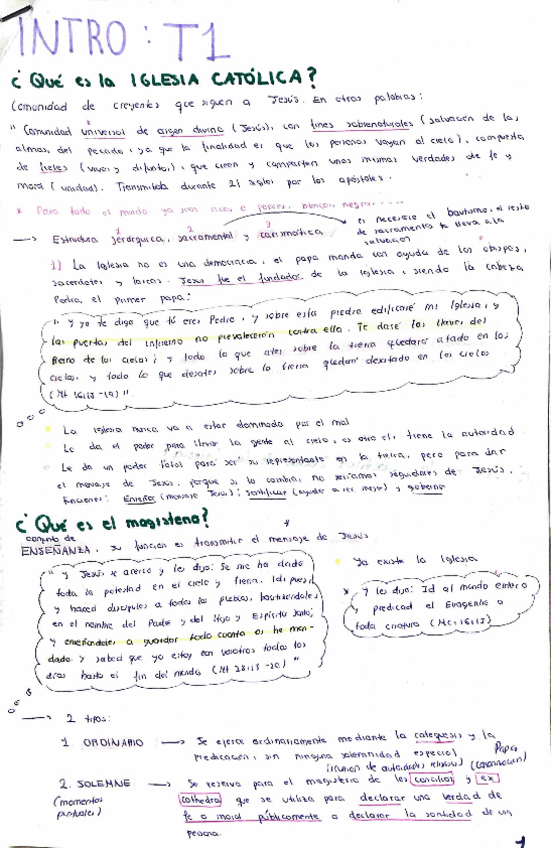 INTRO: T1
¿Qué es la IGLESIA CATÓLICA?
Comunidad de creyentes que siguen a Jesús. En otras palabras:
"Comunidad universal de origen divino (Jesús), con fines sobrenaturales (salvación de las
almas del pecado, ya que la finalidad es que las personas vayan al cielo), compuesta
de fieles (vivos y difuntos), que creen y comparten unas mismas verdades de fe y
moral (unidad). Transmitida durante 21 siglos por los apóstoles.
* Para todo el mundo ya sean ricos, o pobres, blancos, negros.....
es necesario el bautismo, el resto
de sacramentos te lleva a la
salvación
1 2 3
→ Estructura jerárquica, sacramental y carismática
1) La Iglesia no es una democracia, el papa manda con ayuda de los obispos,
sacerdotes y laicos. Jesús fue el fundador de la Iglesia, siendo la cabeza
Pedro, el primer papa:
"Y yo te digo que tú eres Pedro, y sobre esta piedra edificaré mi Iglesia, y
las puertas del infierno no prevalecerán contra ella. Te daré las llaves del
Reino de los cielos; y todo lo que ates sobre la tierra quedará atado en los
cielos, y todo lo que desates sobre la tierra quedará desatado en los cielos
(Mt 16:18-19)".
La Iglesia nunca va a estar dominada por el mal
Le da el poder para llevar la gente al cielo, es otro el, tiene la autoridad
Le da un poder total para ser su representante en la tierra, pero para dar
el mensaje de Jesús, porque si lo cambia, no seríamos seguidores de Jesús.
Funciones: Enseñar (mensaje Jesús); santificar (ayudar a ser mejor) y gobernar
¿Qué es el magisterio?
conjunto de
ENSEÑANZA, su función es transmitir el mensaje de Jesús
"Y Jesús se acercó y les dijo: Se me ha dado
toda la potestad en el cielo y tierra. Id, pues,
y haced discípulos a todos los pueblos, bautizándoles
en el nombre del Padre y del Hijo y Espíritu Santo;
y enseñándoles a guardar todo cuanto os he man-
dado y sabed que yo estoy con vosotros todos los
días hasta el fin del mundo (Mt 28:18-20)"
Ya existe la Iglesia
* Y les dijo: Id al mundo entero y
predicad el Evangelio a
toda criatura (Mc:16:15)
→ 2 tipos:
1. ORDINARIO → Se ejerce ordinariamente mediante la catequesis y la
predicación, sin ninguna solemnidad especial
Papa
(reunión de autoridades religiosas) (canonización)
2. SOLEMNE → Se reserva para el magisterio de los concilios y ex
(momentos
puntuales)
cathedra que se utiliza para declarar una verdad de
fe o moral públicamente o declarar la santidad de una
persona.
1